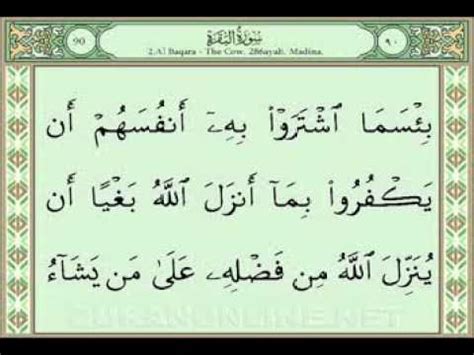 90 سُورَةُ البَقَرَةِ ٩٠
2.Al Baqara - The Cow. 286ayah. Madina.
بِئْسَمَا ٱشْتَرَوْا۟ بِهِۦٓ أَنفُسَهُمْ أَن
يَكْفُرُوا۟ بِمَآ أَنزَلَ ٱللَّهُ بَغْيًا أَن
يُنَزِّلَ ٱللَّهُ مِن فَضْلِهِۦ عَلَىٰ مَن يَشَآءُ
QURANONLINE.NET